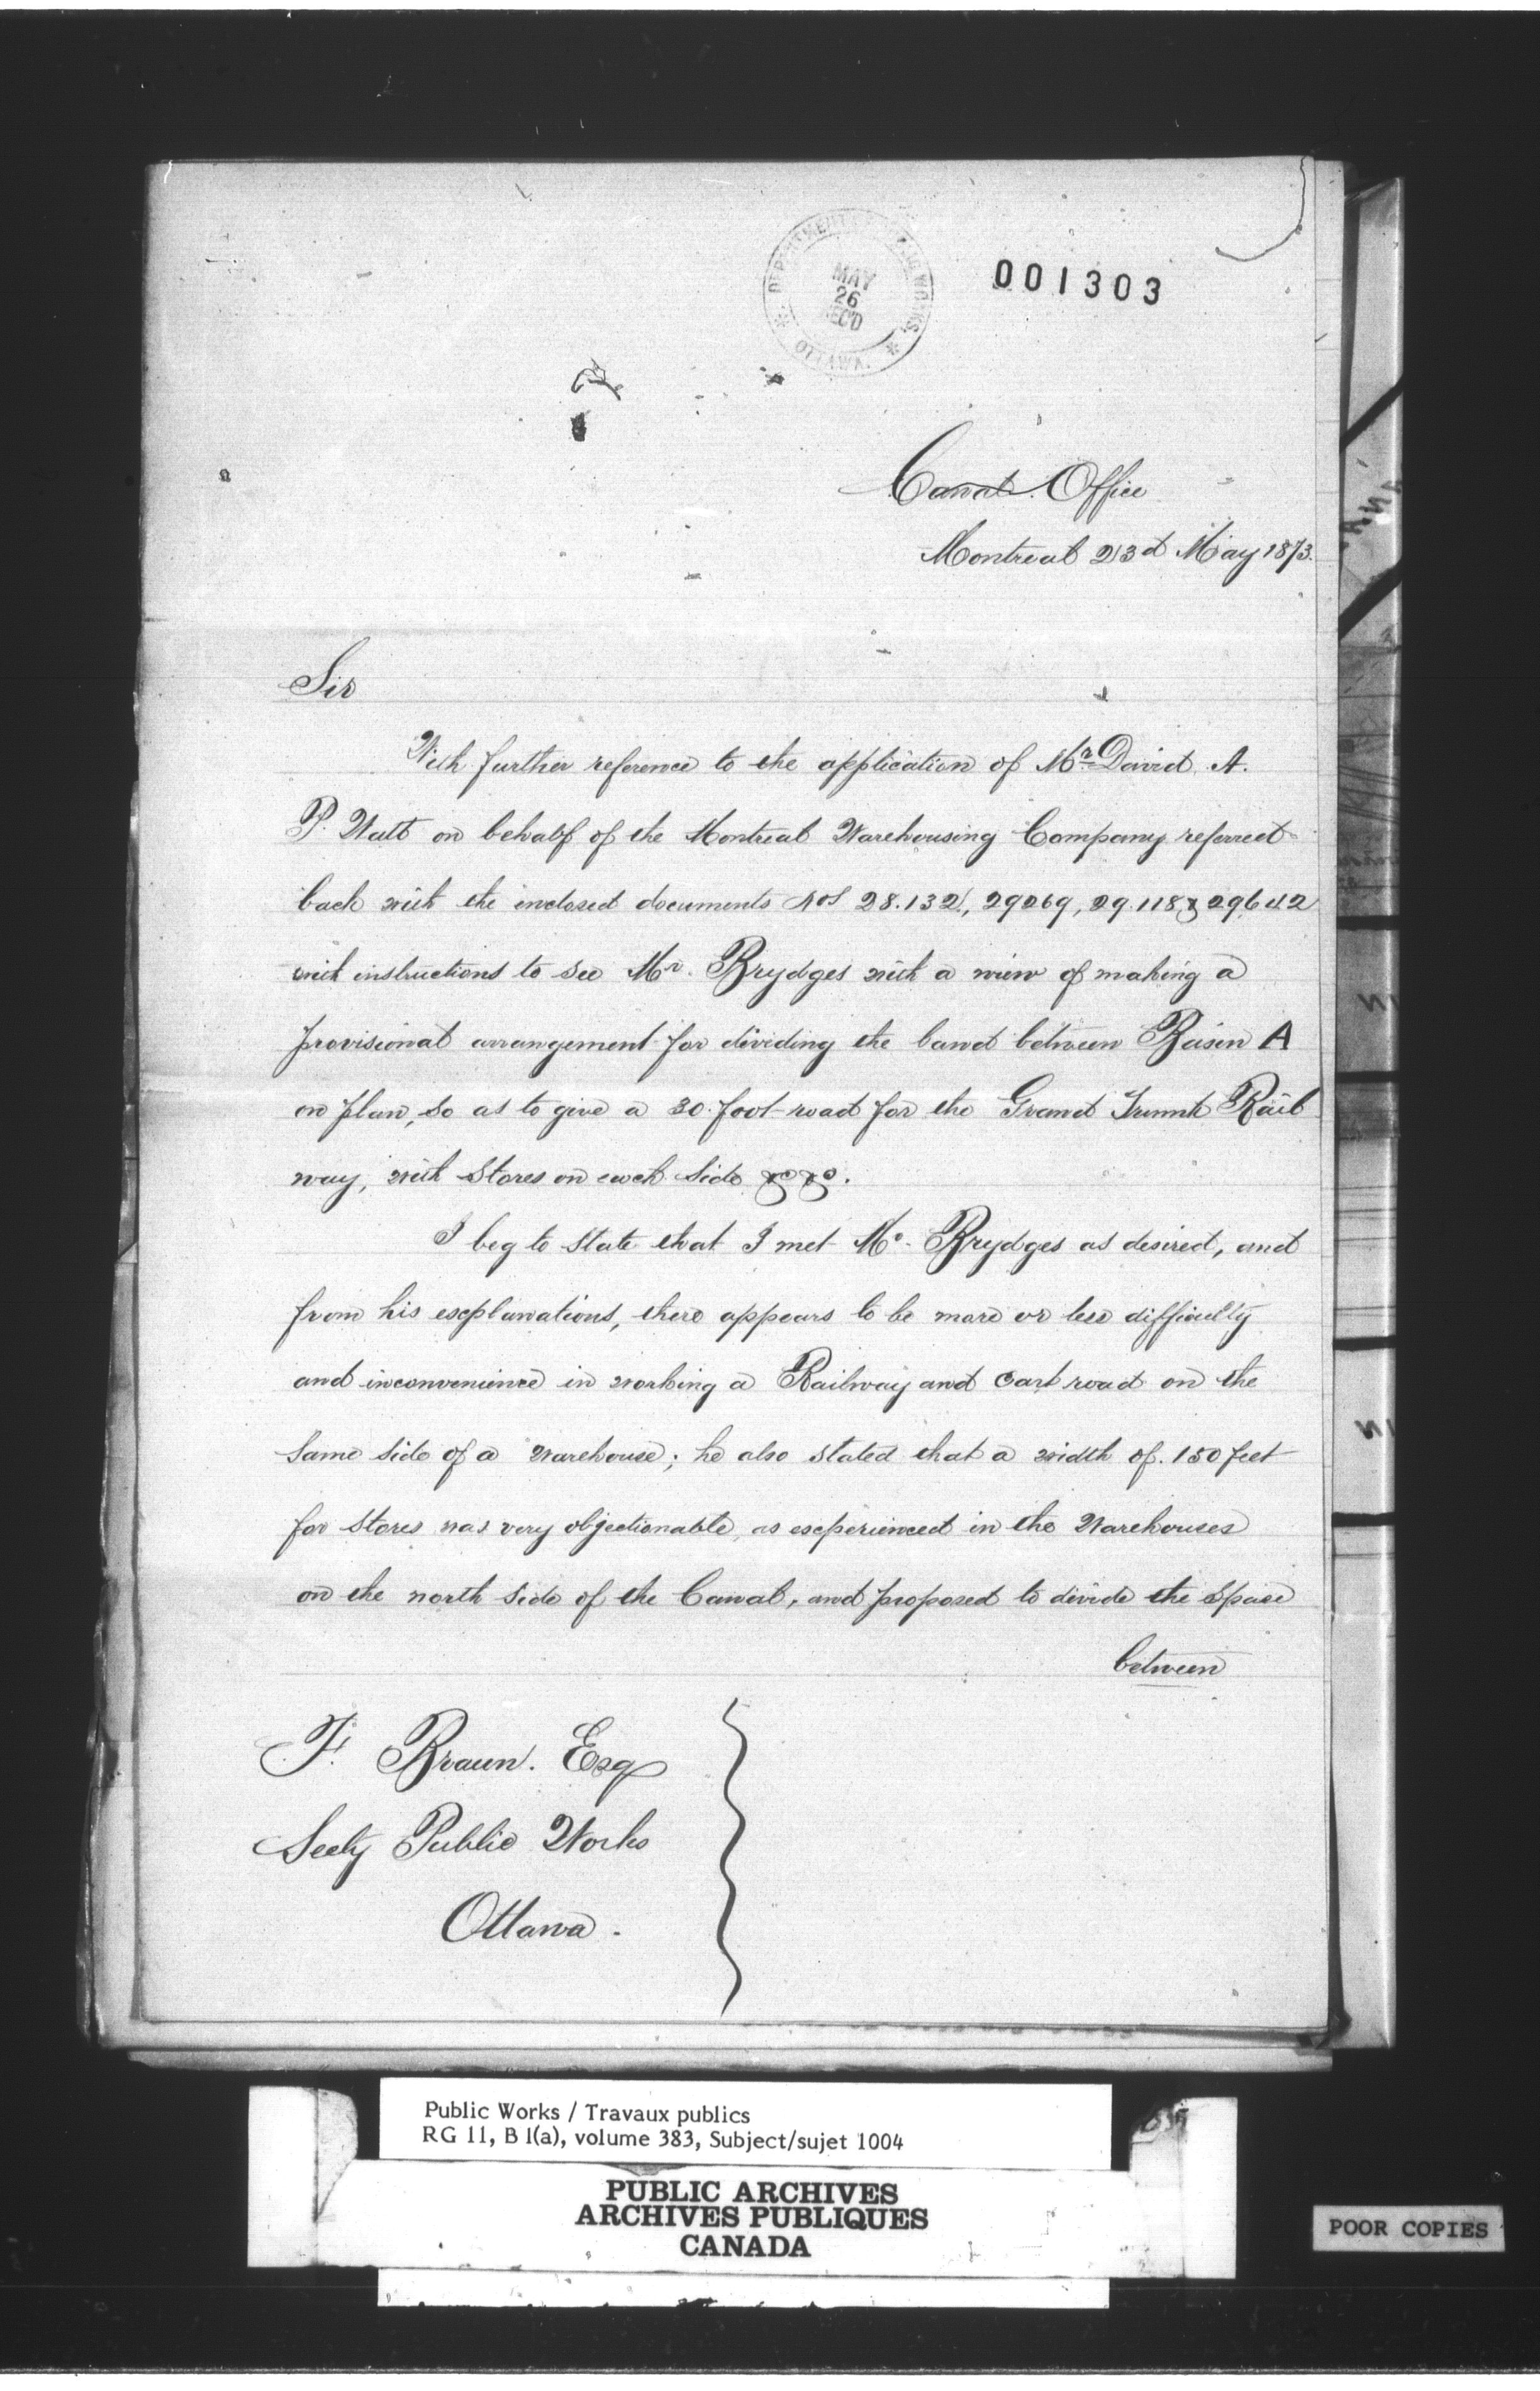 DEPARTMENT PUBLIC WORKS
MAY
26
OTTAWA.
001303
Canal Office
Montreal 23d May 1873.
Sir
With further reference to the application of Mr David A.
P. Watt on behalf of the Montreal Warehousing Company referred
back with the inclosed documents Nos 28.132, 29269, 29.118 & 29642
with instructions to see Mr. Brydges with a view of making a
provisional arrangement for dividing the land between Basin A
on plan, so as to give a 30 foot road for the Grand Trunk Rail
way, with Stores on each side &c &c.
I beg to state that I met Mr. Brydges as desired, and
from his explanations, there appears to be more or less difficulty
and inconvenience in working a Railway and Cart road on the
same side of a warehouse; he also stated that a width of 150 feet
for Stores was very objectionable, as experienced in the Warehouses
on the north side of the Canal, and proposed to divide the space
between
F. Braun. Esq
Secty Public Works
Ottawa.
Public Works / Travaux publics
RG 11, B 1(a), volume 383, Subject/sujet 1004
PUBLIC ARCHIVES
ARCHIVES PUBLIQUES
CANADA
POOR COPIES